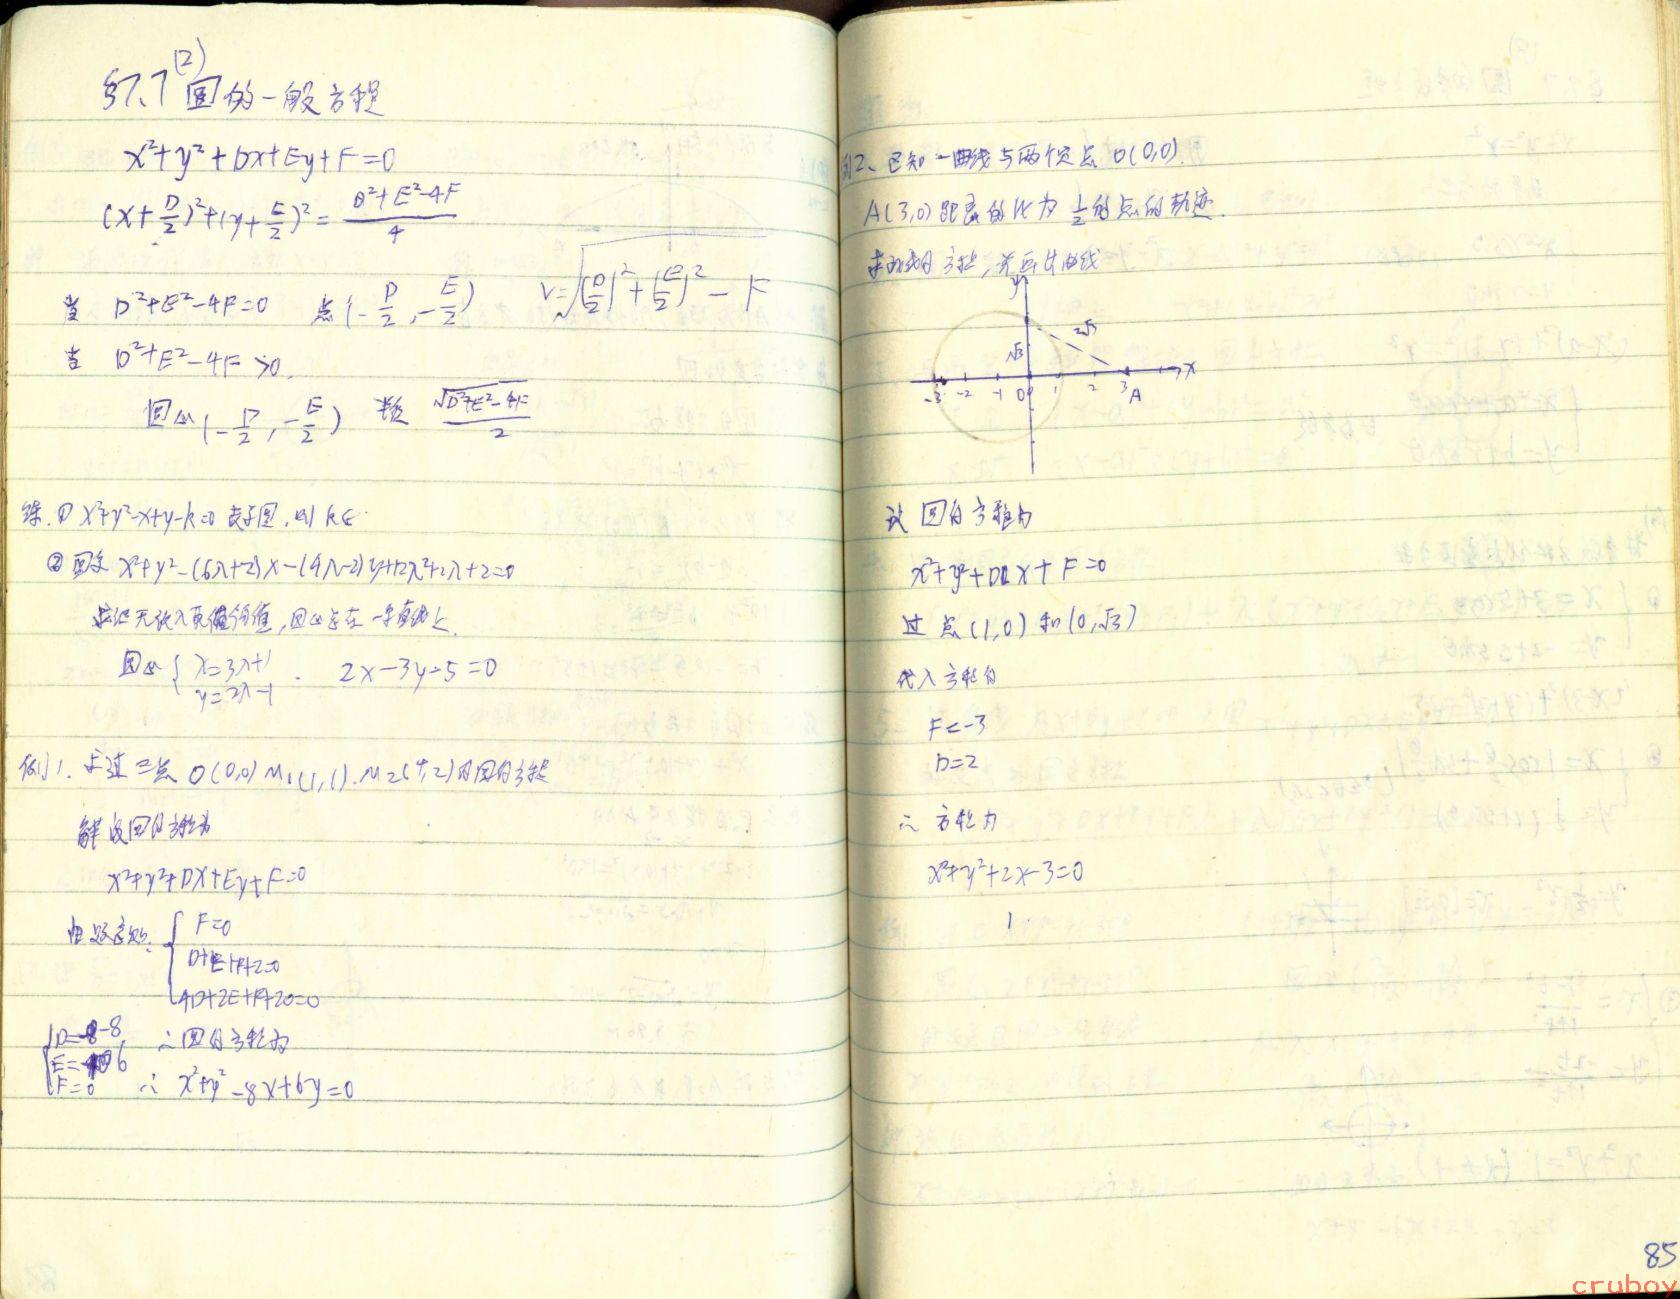 §7.7 (2) 圆的一般方程
x²+y²+Dx+Ey+F=0
(x+D/2)²+(y+E/2)²=(D²+E²-4F)/4
当 D²+E²-4F=0 点(-D/2,-E/2) r=√((D/2)²+(E/2)²-F)
当 D²+E²-4F>0.
圆心(-D/2,-E/2) 半径 √(D²+E²-4F)/2
练.① x²+y²-x+y-k=0 表示圆,则 k∈
② 圆 x²+y²-(6λ+2)x-(4λ-2)y+12λ²+2λ+2=0
求证无论λ取值,圆心在一条直线上.
圆心{x=3λ+1
y=2λ-1 . 2x-3y-5=0
例1.求过三点 O(0,0) M₁(1,1).M₂(4,2)的圆的方程
解设圆的方程为
x²+y²+Dx+Ey+F=0
由题意知:{F=0
D+E+F+2=0
4D+2E+F+20=0
{D=-8
E=6 ∴圆的方程为
F=0 ∴ x²+y²-8x+6y=0
例2、已知一曲线与两个定点 O(0,0).
A(3,0)距离的比为 1/2 的点的轨迹.
求曲线的方程,并画出曲线
y
√3
2√3
-3 -2 -1 0 1 2 3 x
A
设 圆的方程为
x²+y²+Dx+F=0
过点(1,0)和(0,√3)
代入方程的
F=-3
D=2
∴ 方程为
x²+y²+2x-3=0
85
cruboy